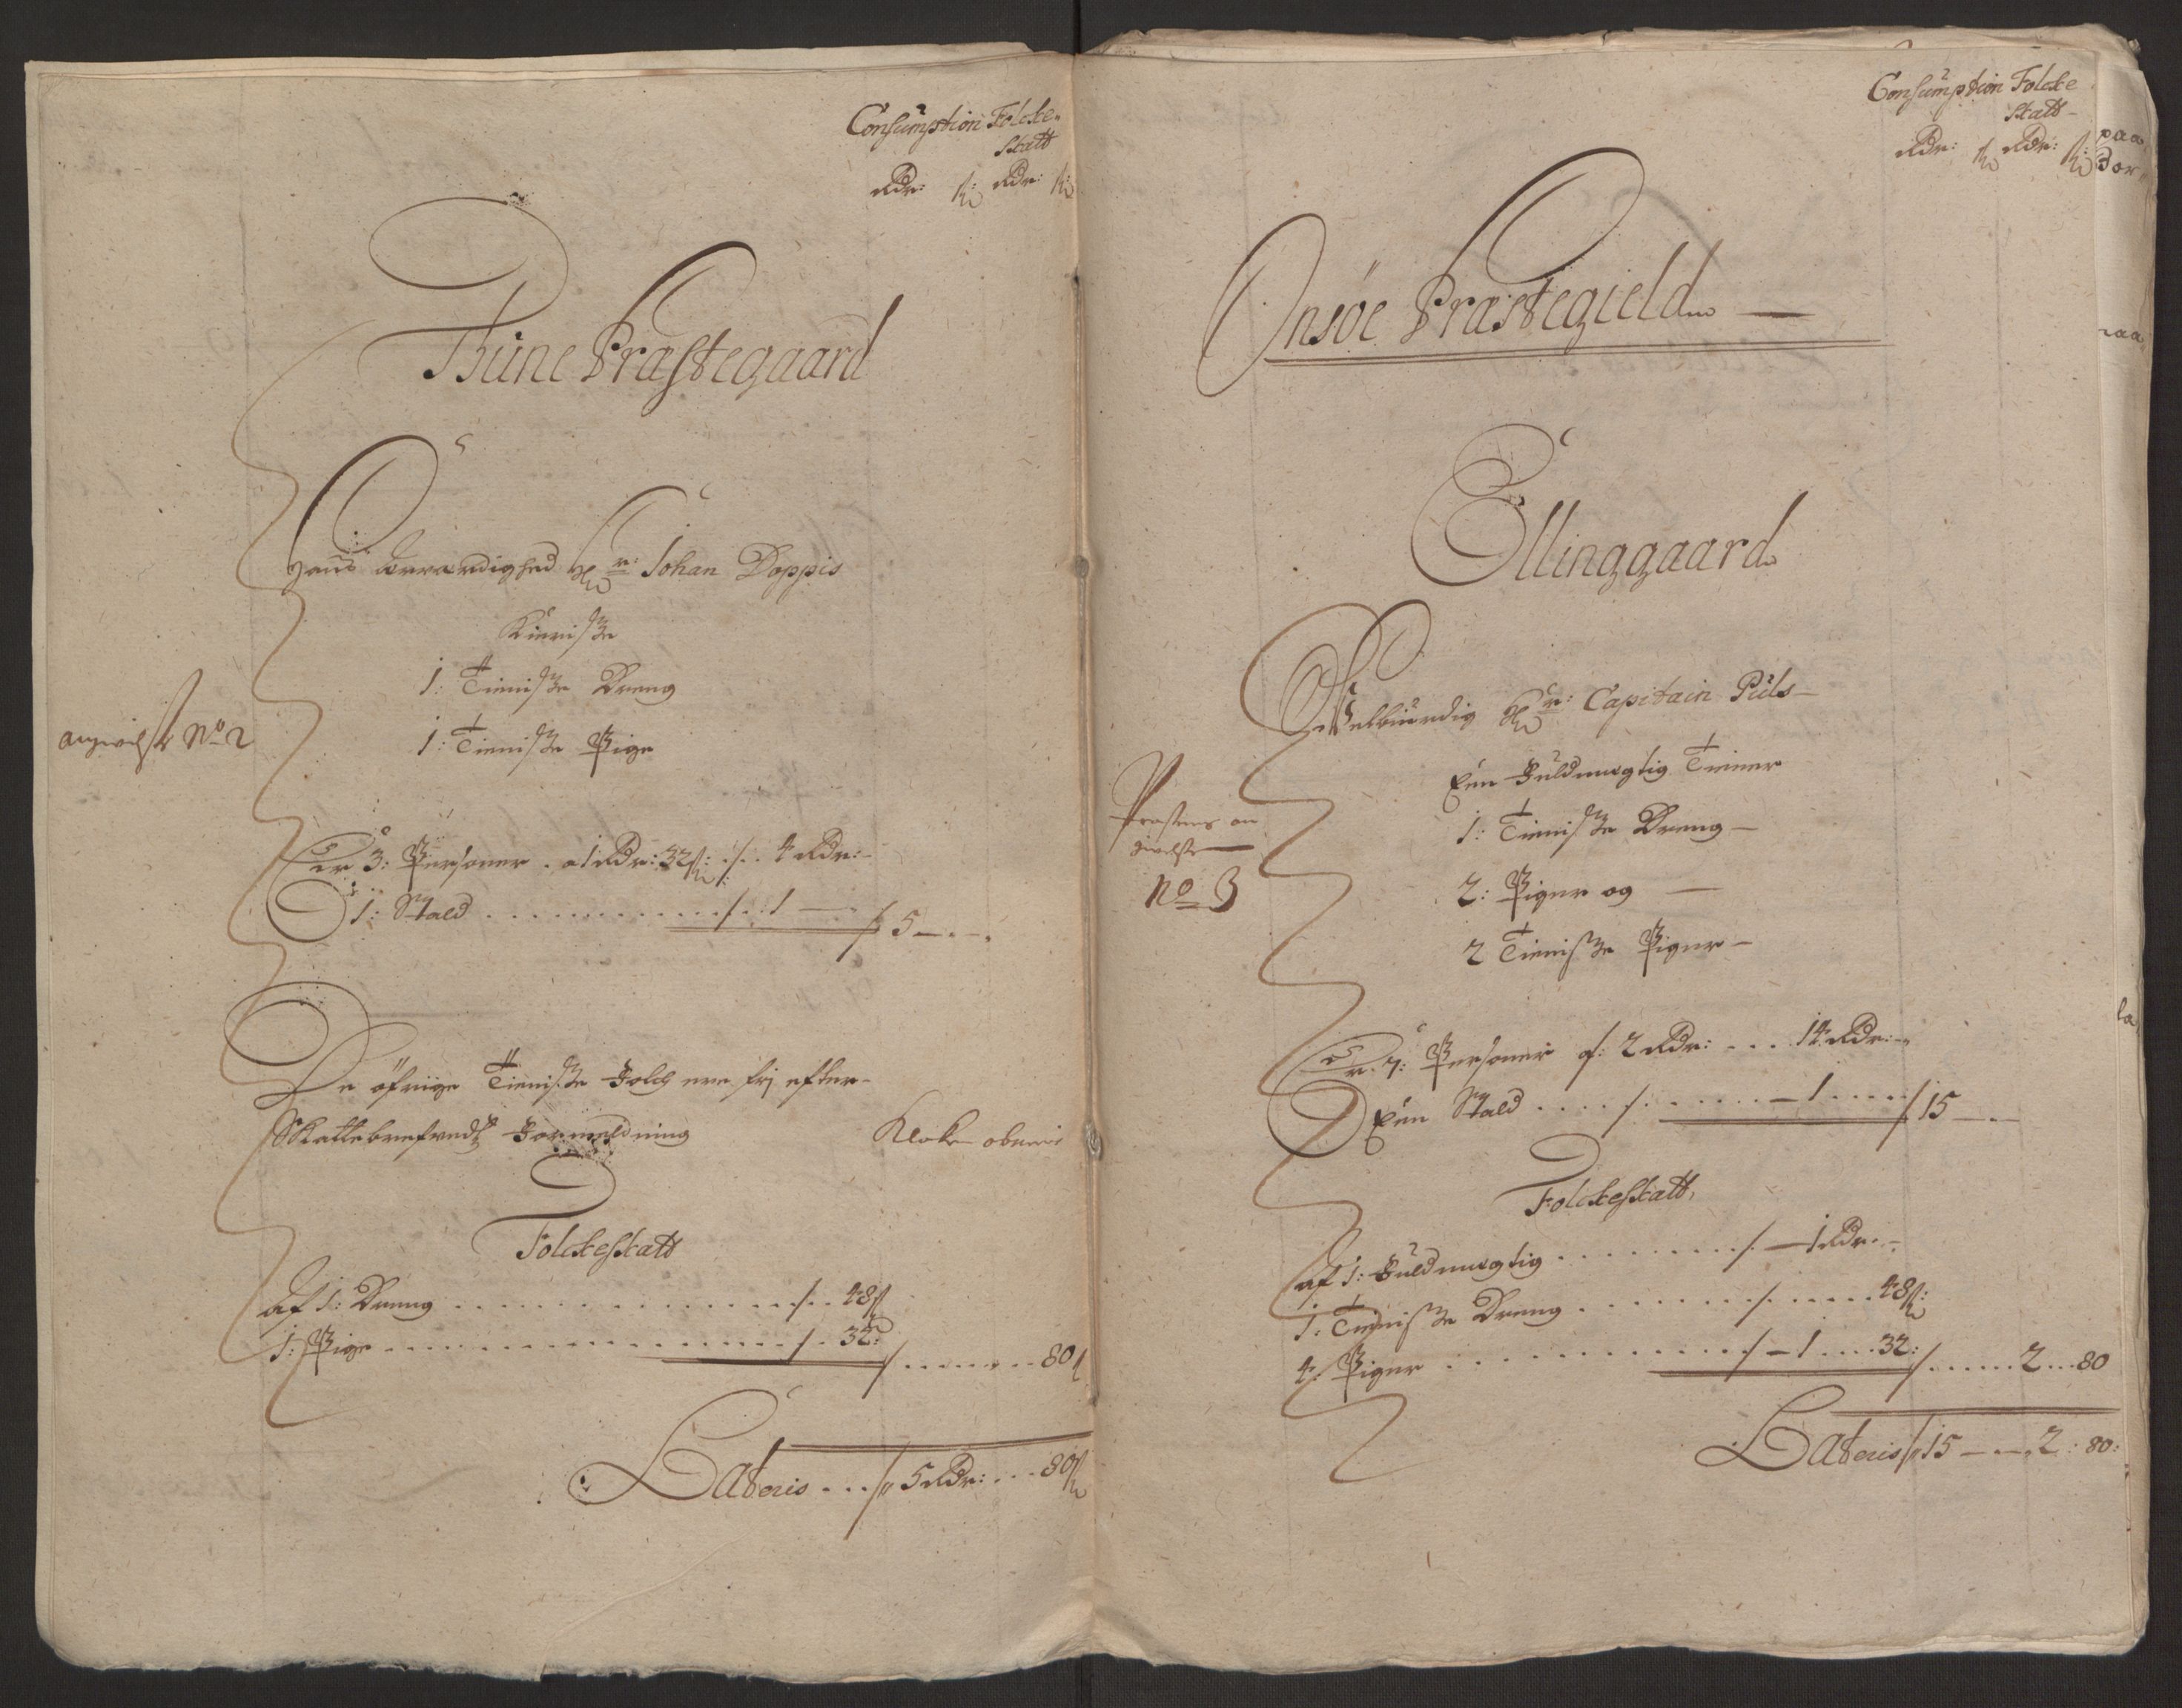 Consumption Folcke-
Skatt
Rdr: ß: Rdr: ß:
Thune Præstegaard
Hans Ærværdighed Hr: Johan Doppis
Kieriste
1: Tieniste Dreng
1: Tieniste Pige
No 2
Er 3: Personer a 1 Rdr: 32ß: ./. 4 Rdr:
1: Stald ./. 1 — / 5 —
De öfrige Tieniste Folch ere frj efter-
Skattebrefvedtz Formeldning
Folckeskatt
af 1: Dreng ./. 48ß
1: Pige ./. 32:
/ 80
Lateris ... // 5 Rdr: ... 80ß
Consumption Folcke
Skatt-
Rdr: ß Rdr: ß:
Onsöe Præstegield —
Ellinggaard
Velbiurdig Hr: Capitain Püls-
Een Fuldmægtig Tienner
1: Tieniste Dreng —
2: Piger og —
2 Tieniste Piger —
Præstens an
givelse
No 3
Er 7: Personer af: 2 Rdr: ... 14 Rdr:
Een Stald ..../. — 1 ..../ 15 —
Folckeskatt,
af 1: Fuldmægtig ./. — 1 Rdr. -
1: Tieniste Dreng ./. 48ß:
4: Piger ./. — 1 ... 32: / ..... 2 ... 80
Lateris // 15 — 2 : 80:
paa
For
raa
la